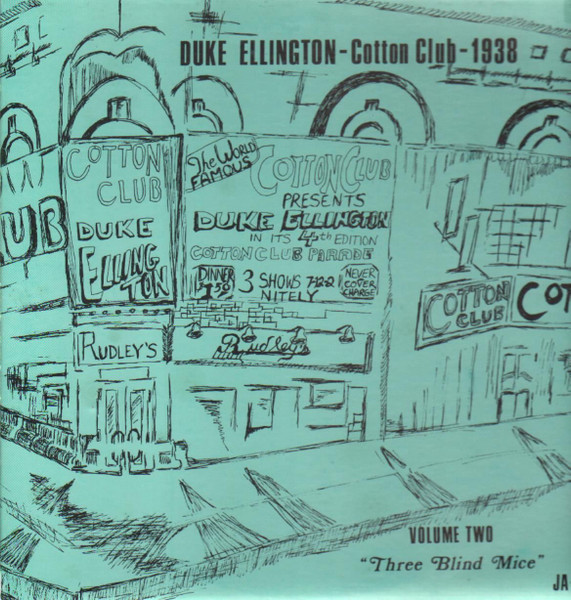 DUKE ELLINGTON - Cotton Club - 1938
COTTON
CLUB
DUKE
ELLING
TON
The WORLD
FAMOUS
COTTON CLUB
PRESENTS
DUKE ELLINGTON
IN ITS 4th EDITION
COTTON CLUB PARADE
DINNER
1.50
3 SHOWS 7-12-2
NITELY
NEVER
COVER
CHARGE
UB
COTTON
CLUB
COT
RUDLEY'S
Rudley's
VOLUME TWO
"Three Blind Mice"
JA